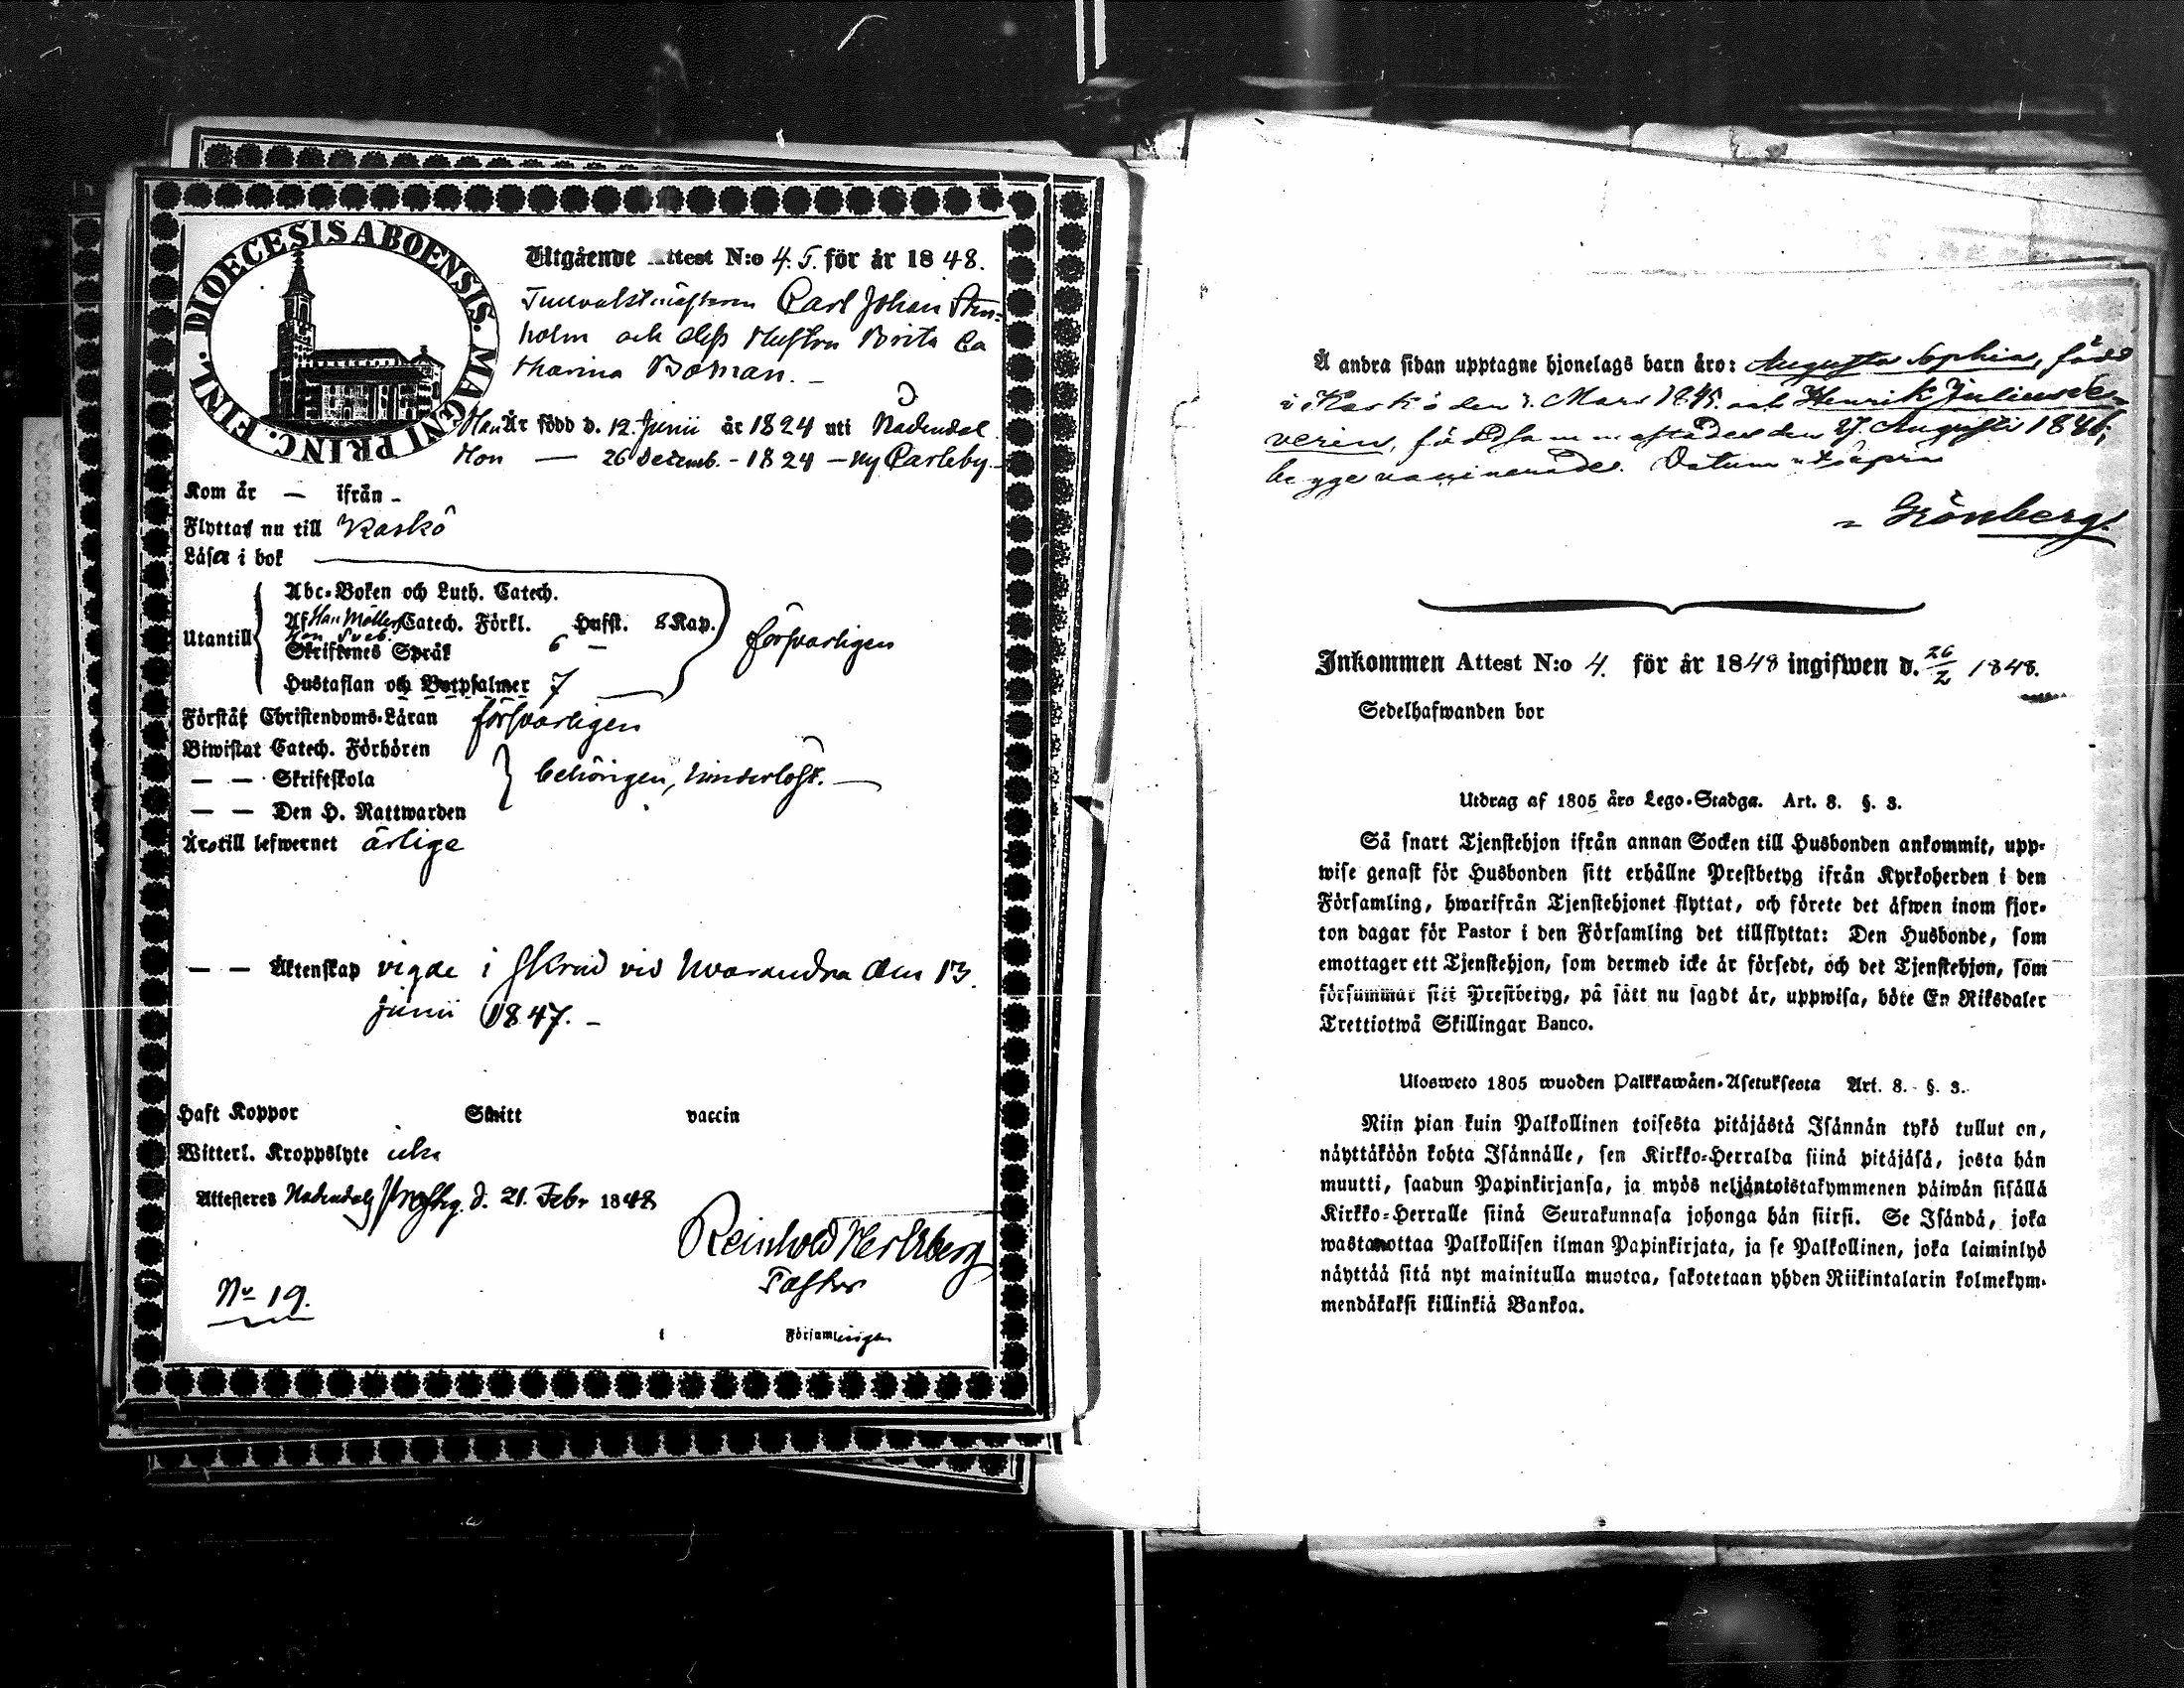 DIOECESIS ABOENSIS. MAGNI PRINC. FINL.
Utgående Attest N:o 4. 5. för år 1848.
Carl Johan Sten=
holm och dess Hustru Brita Ca
tharina Boman. —
Han Är född d. 12. Junii år 1824 uti Nådendal
Hon — 26 Decemb. - 1824 — Ny Carleby. —
Kom år — ifrån -
Flyttat nu till Kaskö
Läser i bok
Utantill
Abc=Boken och Luth. Catech.
Af Han Möllers Catech. Förkl. Hufst. 8 Kap.
Hon Sveb. 6 —
Skriftenes Språk
Hustaflan och Botpsalmer 7
försvarligen
Förstår Christendoms=Läran försvarligen
Biwistat Catech. Förhören
— — Skriftskola
— — Den H. Nattwarden
behörigen,
Är till lefwernet ärlige
— — Äktenskap vigde i med hvarandra den 13.
Junii 1847. —
Haft Koppor Smitt vaccin
Witterl. Kroppslyte icke
Attesteres Nådendals d. 21. Febr 1848
Reinhold Hertzberg
Pastor
i Församlingen
No 19.
Å andra sidan upptagne hjonelags barn äro: Augusta Sophia, född
i Kaskö den Mars 1845. och Henrik Julius Se=
verin, född sammastädes den 27 Augusti 1846;
begge vaccinerade. Datum ut supra
Grönberg.
Inkommen Attest N:o 4. för år 1848 ingifwen d. 26/2 1848.
Sedelhafwanden bor
Utdrag af 1805 års Lego=Stadga. Art. 8. §. 3.
Så snart Tjenstehjon ifrån annan Socken till Husbonden ankommit, upp=
wise genast för Husbonden sitt erhållne Prestbetyg ifrån Kyrkoherden i den
Församling, hwarifrån Tjenstehjonet flyttat, och förete det äfwen inom fjor=
ton dagar för Pastor i den Församling det tillflyttat: Den Husbonde, som
emottager ett Tjenstehjon, som dermed icke är försedt, och det Tjenstehjon, som
försummar sitt Prestbetyg, på sätt nu sagdt är, uppwisa, böte En Riksdaler
Trettiotwå Skillingar Banco.
Ulosweto 1805 wuoden Palkkawäen=Asetuksesta Art. 8. §. 3.
Niin pian kuin Palkollinen toisesta pitäjästä Isännän tykö tullut on,
näyttäköön kohta Isännälle, sen Kirkko=Herralda siinä pitäjäsä, josta hän
muutti, saadun Papinkirjansa, ja myös neljäntoistakymmenen päiwän sisällä
Kirkko=Herralle siinä Seurakunnasa johonga hän siirsi. Se Isändä, joka
wastanottaa Palkollisen ilman Papinkirjata, ja se Palkollinen, joka laiminlyö
näyttää sitä nyt mainitulla muotoa, sakotetaan yhden Riikintalarin kolmekym=
mendäkaksi killinkiä Bankoa.